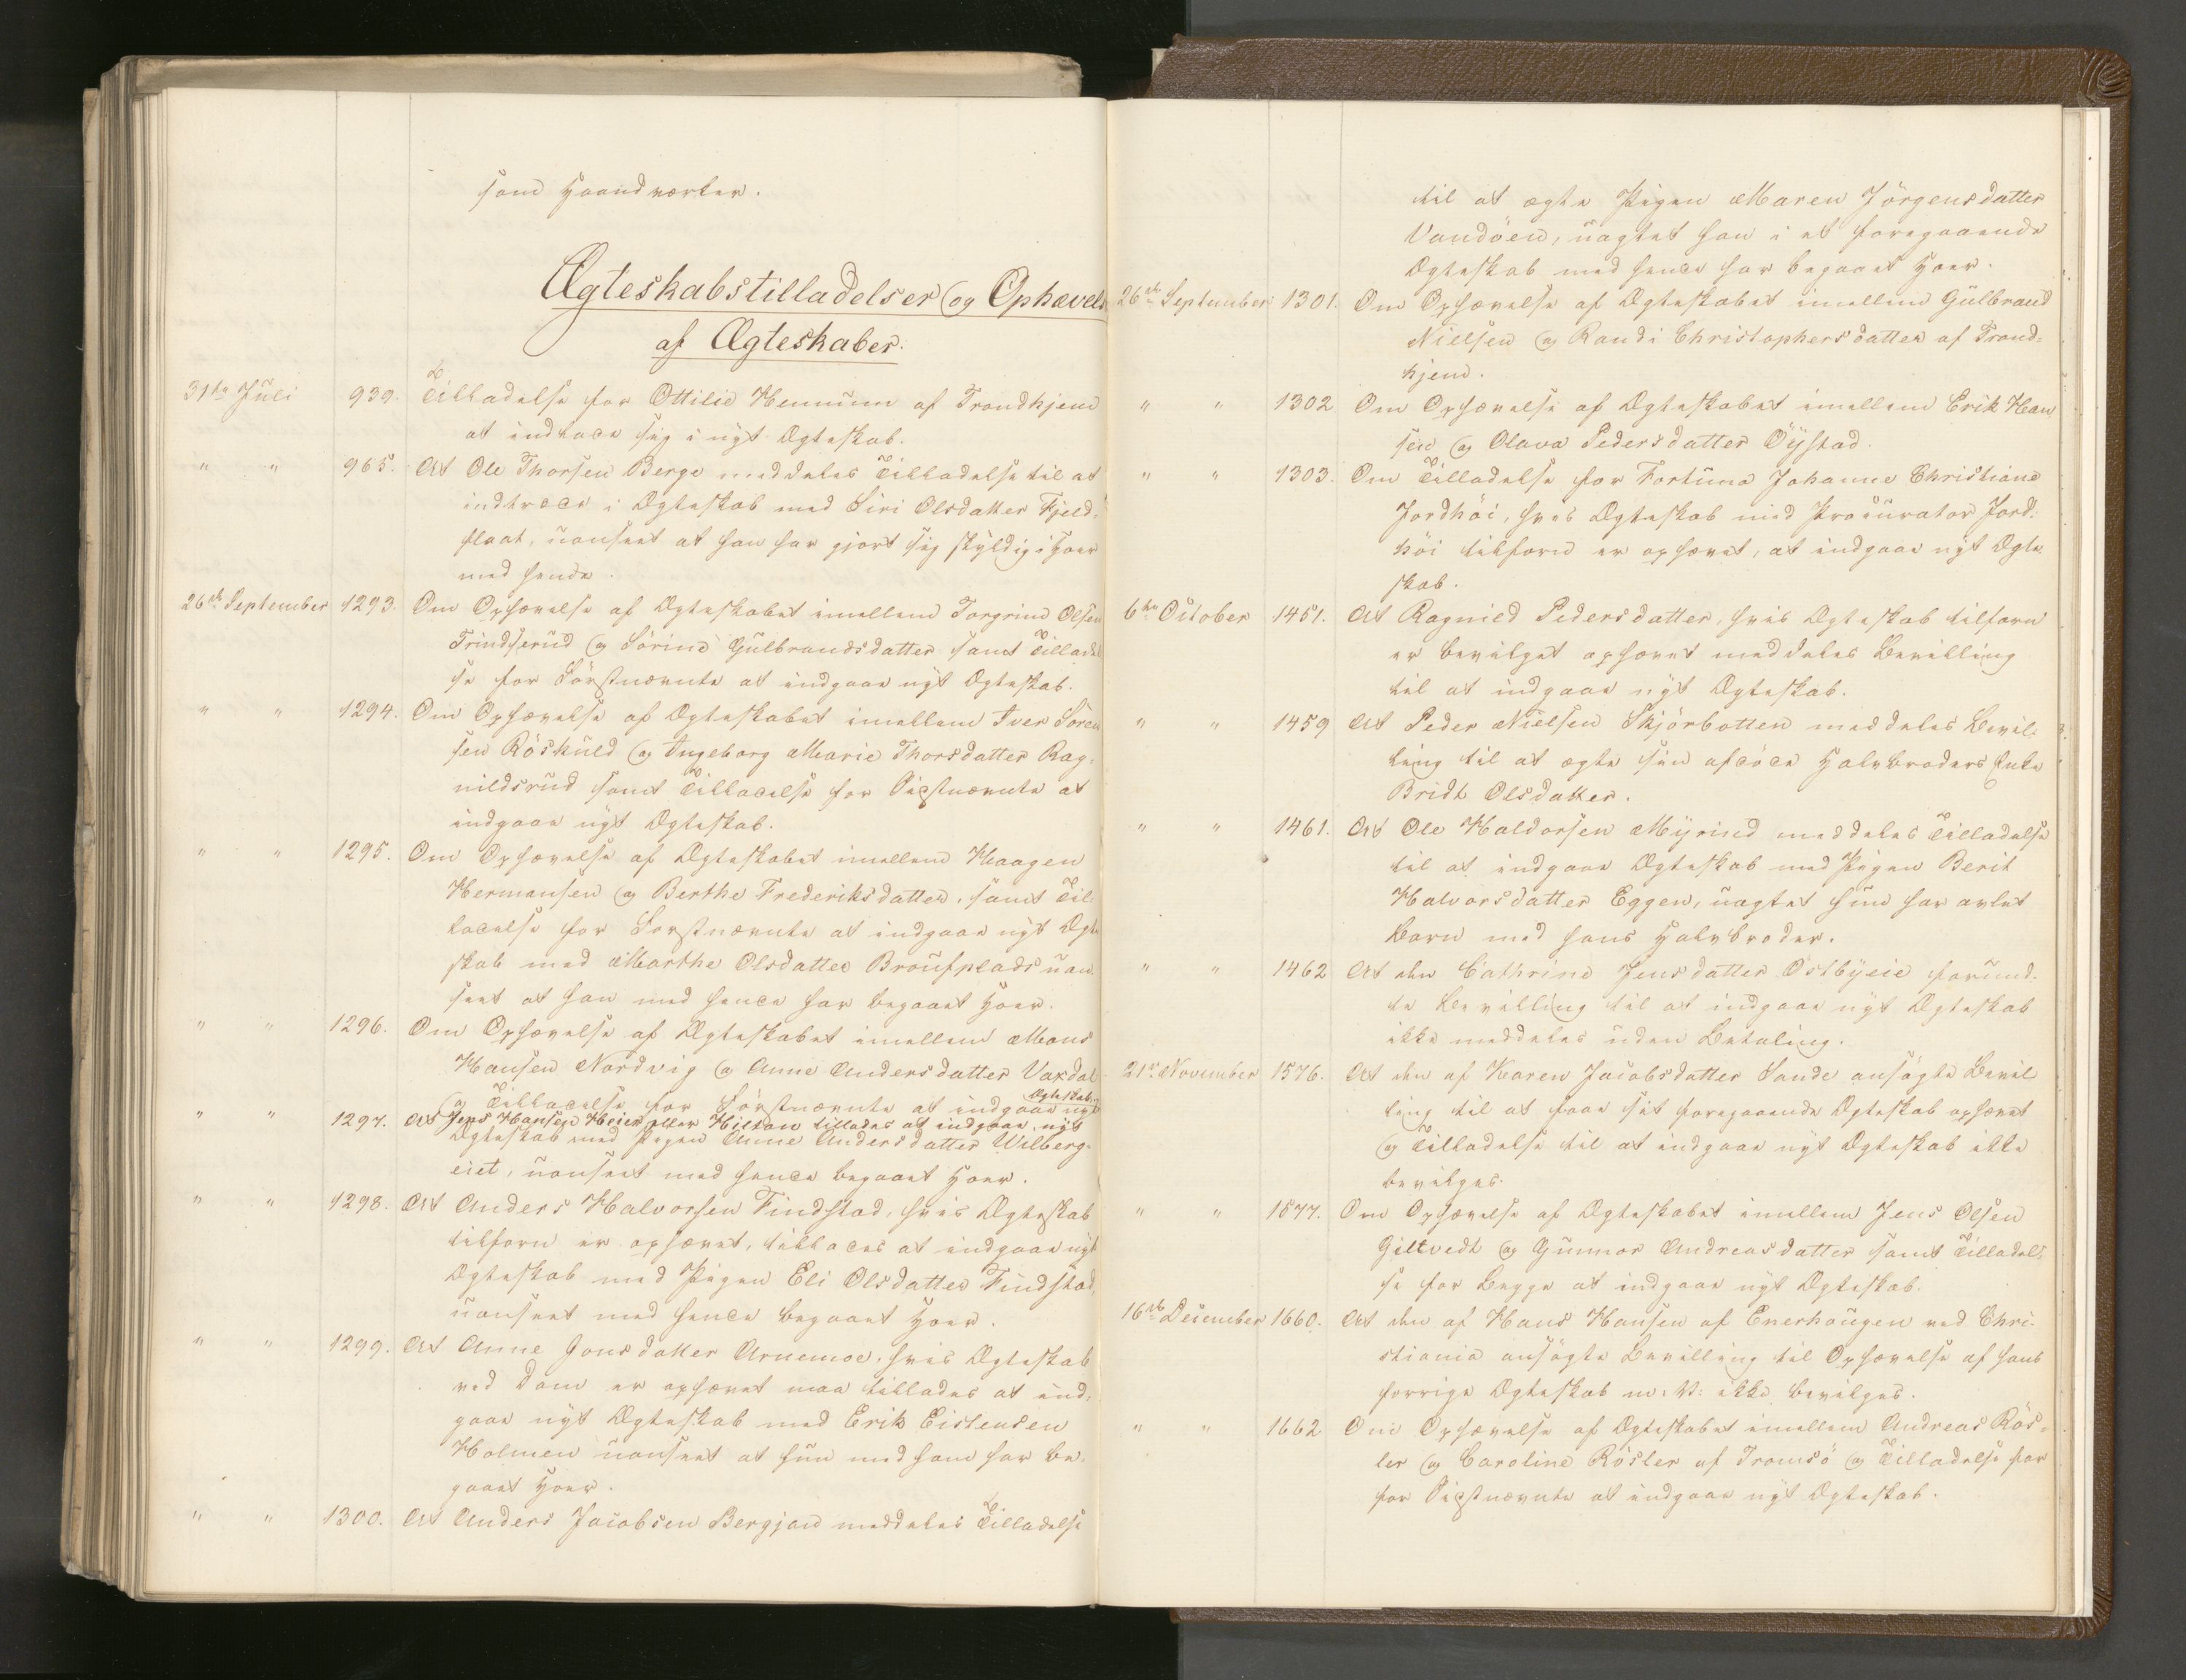 som Haandværker.
Ægteskabstilladelser og Ophævel
af Ægteskaber.
31te Juli 939. Tilladelse for Ottilie Hemnum af Trondhjem
at indlade sig i nyt Ægteskab.
" " 965. At Ole Thorsen Berge meddeles Tilladelse til at
indtræde i Ægteskab med Siri Olsdatter Fjeld-
flaat, uanseet at han har gjort sig skyldig i Hoer
med hende.
26de September 1293. Om Ophævelse af Ægteskabet imellem Torgrim Olsen
Trindserud og Sörine Gulbrandsdatter samt Tilladel
se for Förstnævnte at indgaae nyt Ægteskab.
" " 1294. Om Ophævelse af Ægteskabet imellem Iver Sören
sen Röskuld og Ingeborg Marie Thorsdatter Rag-
nildsrud samt Tilladelse for Sidstnævnte at
indgaae nyt Ægteskab.
" " 1295. Om Ophævelse af Ægteskabet imellem Haagen
Hermansen og Berthe Frederiksdatter, samt Til-
ladelse for Förstnævnte at indgaae nyt Ægte
skab med Marthe Olsdatter Broufplads uan-
seet at han med hende har begaaet Hoer.
" " 1296. Om Ophævelse af Ægteskabet imellem Mons
Hansen Nordvig og Anne Andersdatter Vaxdal
og Tilladelse for Förstnævnte at indgaae nyt Ægteskab.
" " 1297. At Jens Hansen Heier eller Hilton tillades at indgaae nyt
Ægteskab med Pigen Anne Andersdatter Wilberg-
eiet, uanseet med hende begaaet Hoer.
" " 1298. At Anders Halvorsen Findstad, hvis Ægteskab
tilforn er ophævet, tillades at indgaae nyt
Ægteskab med Pigen Eli Olsdatter Findstad,
uanseet med hende begaaet Hoer.
" " 1299. At Anne Jonsdatter Arnemoe, hvis Ægteskab
ved Dom er ophævet maa tillades at ind-
gaae nyt Ægteskab med Erik Eistensen
Holmen uanseet at hun med ham har be-
gaaet Hoer.
" " 1300. At Anders Jacobsen Bergjan meddeles Tilladelse
til at ægte Pigen Maren Jörgensdatter
Vandöen, uagtet han i et foregaaende
Ægteskab med hende har begaaet Hoer.
26de September 1301. Om Ophævelse af Ægteskabet imellem Gulbrand
Nielsen og Randi Christophersdatter af Trond-
hjem.
" " 1302 Om Ophævelse af Ægteskabet imellem Erik Han
sen og Olava Pedersdatter Öystad.
" " 1303. Om Tilladelse for Fortuna Johanne Christiane
Jordhöi, hvis Ægteskab med Procurator Jord-
höi tilforn er ophævet, at indgaae nyt Ægte
skab.
6te October 1451. At Ragnied Pedersdatter, hvis Ægteskab tilforn
er bevilget ophævet meddeles Bevilling
til at indgaae nyt Ægteskab.
" " 1459 At Peder Nielsen Skjörbotten meddeles Bevil-
ling til at ægte sin afdöde Halvbroders Enke
Bridt Olsdatter.
" " 1461. At Ole Haldorsen Myrind meddeles Tilladelse
til at indgaae Ægteskab med Pigen Berit
Halvorsdatter Eggen, uagtet hun har avlet
Barn med hans Halvbroder.
" " 1462 At den Cathrine Jensdatter Östbyeie forund-
te Bevilling til at indgaae nyt Ægteskab
ikke meddeles uden Betaling.
21de November 1576. At den af Karen Jacobsdatter Sande ansögte Bevil
ling til at faae sit foregaaende Ægteskab ophævet
og Tilladelse til at indgaae nyt Ægteskab ikke
bevilges.
" " 1577. Om Ophævelse af Ægteskabet imellem Jens Olsen
Giltvedt og Gunnor Andreasdatter samt Tilladel-
se for Begge at indgaae nyt Ægteskab.
16de December 1660. At den af Hans Hansen af Enerhougen ved Chri-
stiania ansögte Bevilling til Ophævelse af hans
forrige Ægteskab m: V: ikke bevilges.
" " 1662 Om Ophævelse af Ægteskabet imellem Andreas Rös-
ler og Caroline Rösler af Tromsö og Tilladelse for
for Sidstnævnte at indgaae nyt Ægteskab.